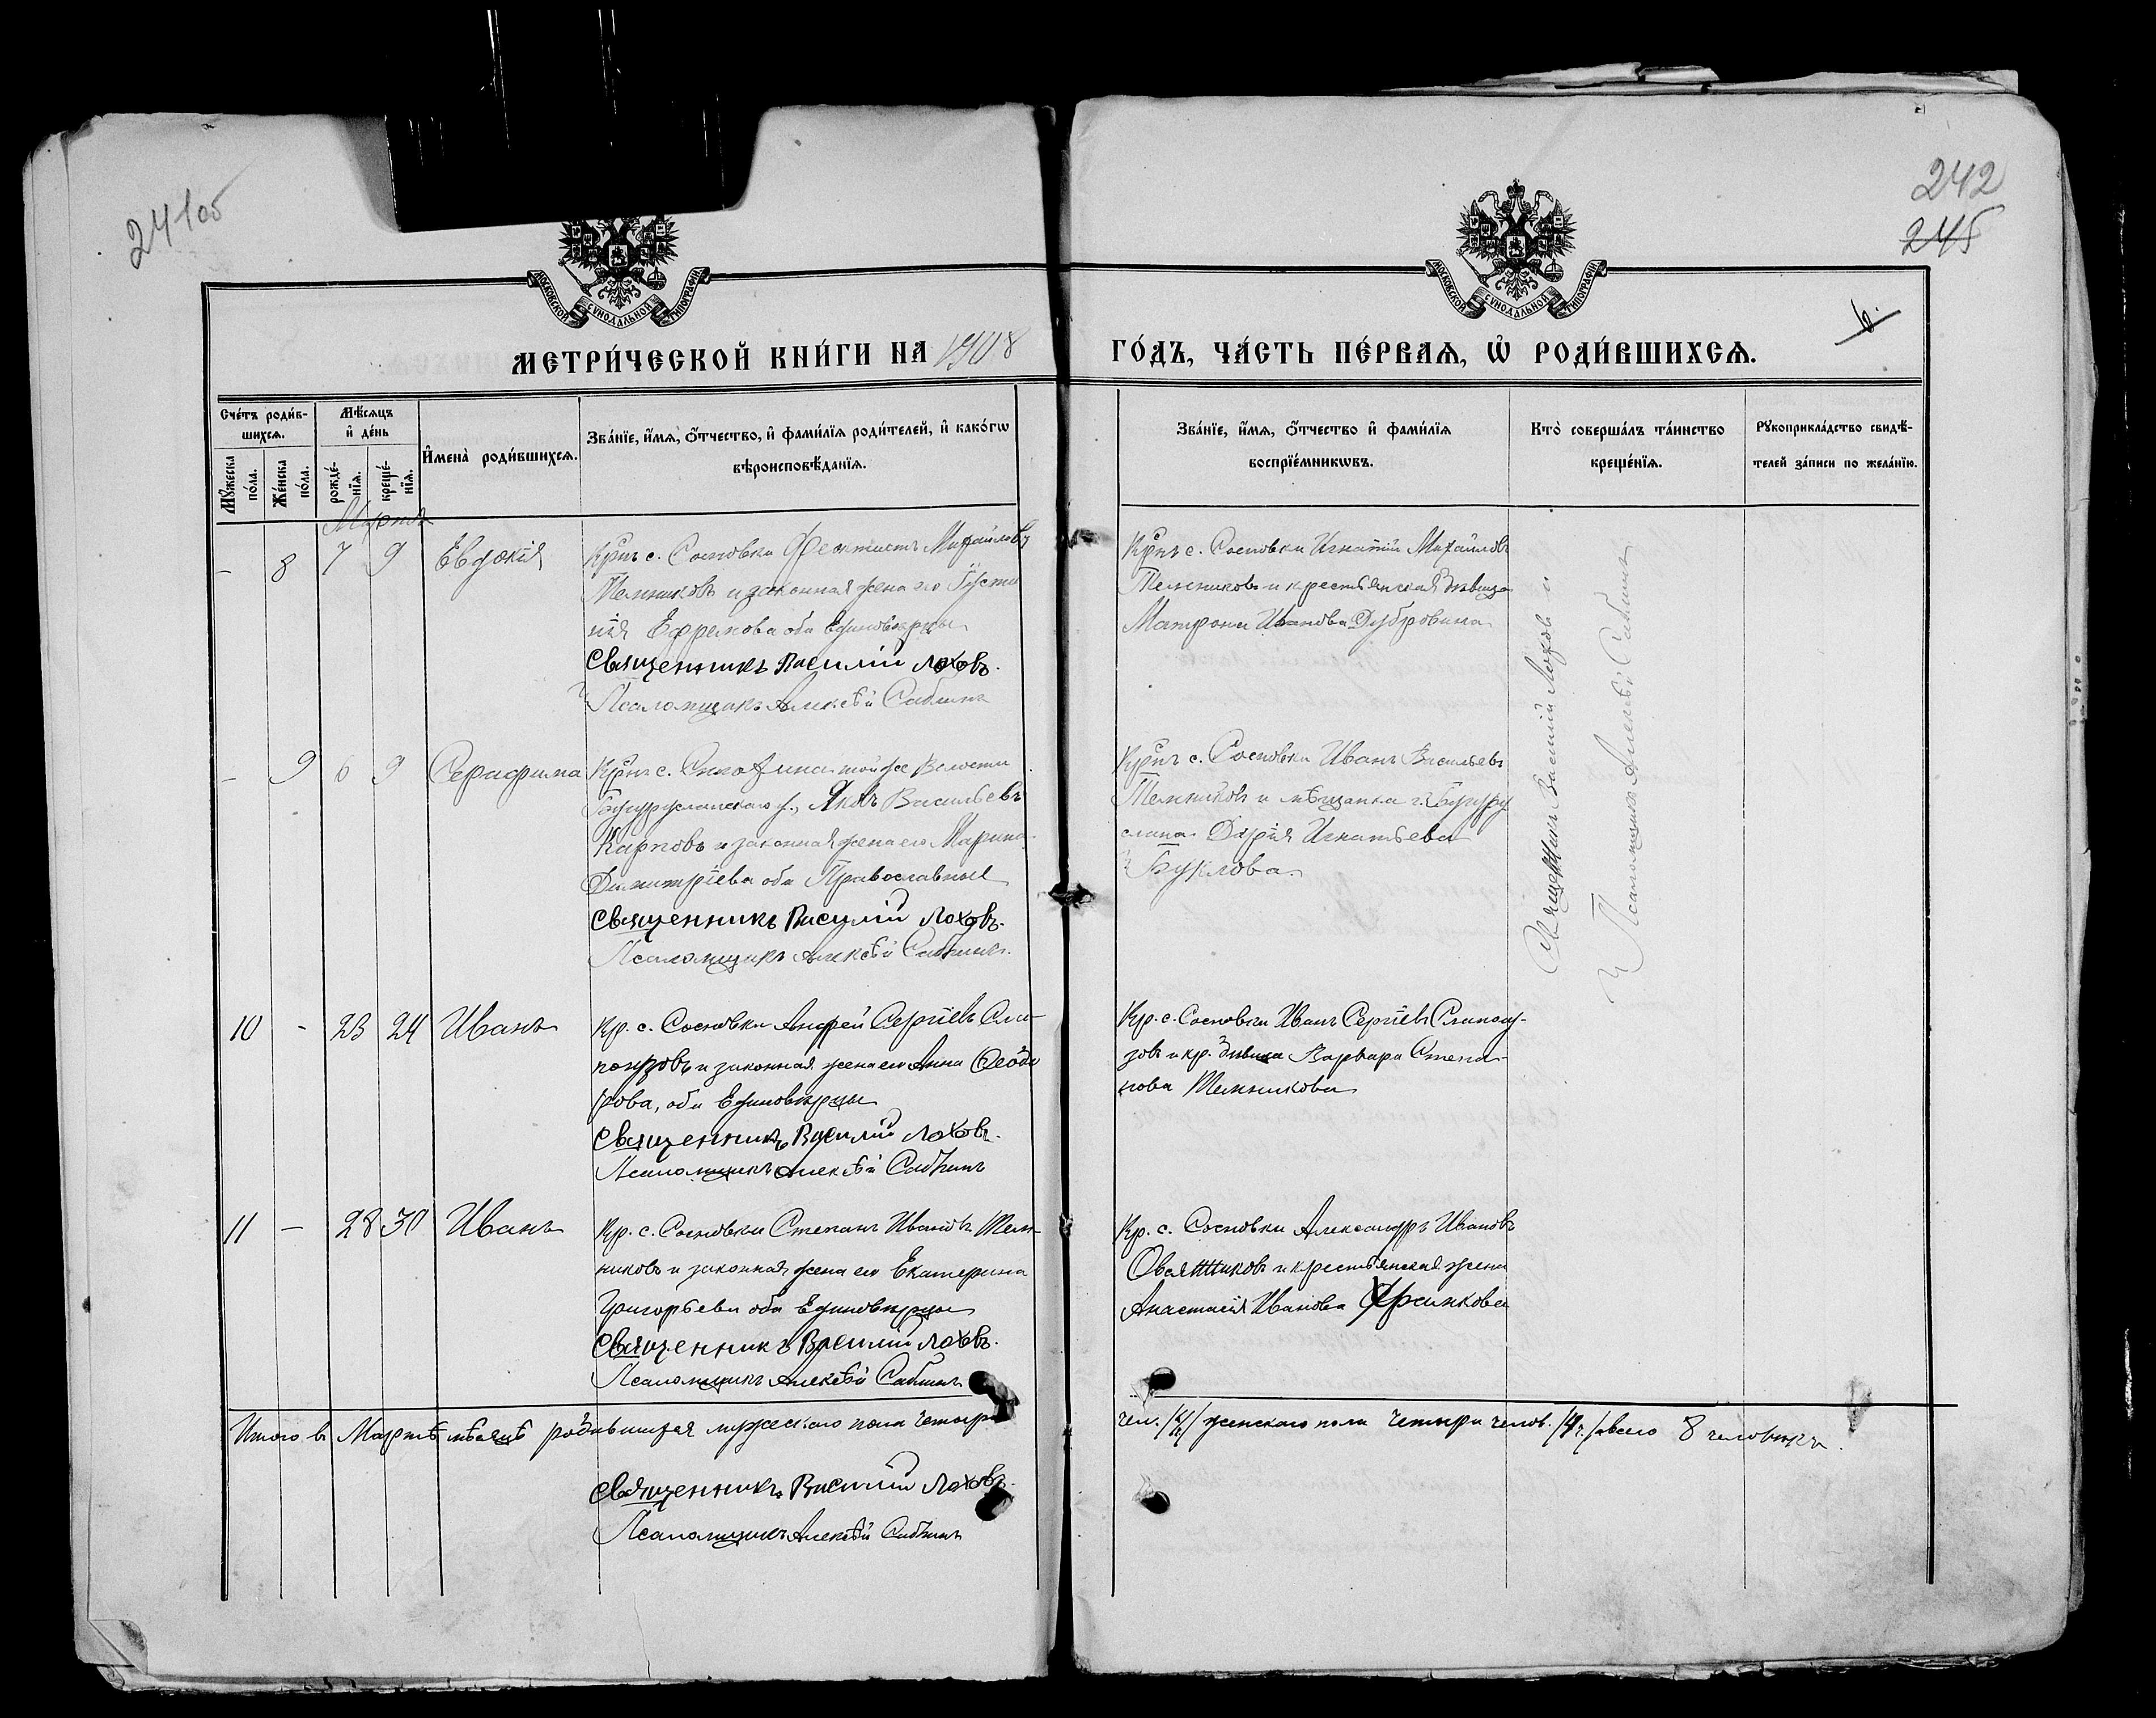 241об
242
245
6.
МОСКОВСКОЙ СѴНОДАЛЬНОЙ ТИПОГРАФІИ
МОСКОВСКОЙ СѴНОДАЛЬНОЙ ТИПОГРАФІИ
МЕТРИ́ЧЕСКОЙ КНИ́ГИ НА 1908
ГО́ДЪ, ЧА́СТЬ ПЕ́РВАѦ, Ѡ҆ РОДИ́ВШИХСѦ.
Сче́тъ роди́в-
шихсѧ.
Мꙋ́жеска
по́ла.
Же́нска
по́ла.
Мѣ́сѧцъ
и҆ де́нь
рожде́-
нїѧ.
креще́-
нїѧ.
И҆мена̀ роди́вшихсѧ.
Зва́нїе, и҆́мѧ, ѻ҆́тчество, и҆ фами́лїѧ роди́телей, и҆ како́гѡ
вѣроисповѣ́данїѧ.
Зва́нїе, и҆́мѧ, ѻ҆́тчество и҆ фами́лїѧ
воспрїе́мникѡвъ.
Кто̀ соверша́лъ та́инство
креще́нїѧ.
Рꙋкоприкла́дство свидѣ́-
телей за́писи по жела́нїю.
Мартъ
— 8 7 9 Евдокія
Крнъ с. Сосновки Феоктистъ Михайловъ
Темниковъ и законная жена его Іусти
нія Ефремова оба Единовѣрцы
Священникъ Василій Лоховъ.
Псаломщикъ Алексѣй Сабынъ
Крнъ с. Сосновки Игнатій Михайловъ
Темниковъ и крестьянская дѣвица
Матрона Иванова Дубровина
— 9 6 9 Серафима
Крнъ с. той же Волости
Бугурусланскаго у., Яковъ Васильевъ
Карповъ и законная жена его Марина
Димитріева оба Православные
Священникъ Василій Лоховъ.
Псаломщикъ Алексѣй Сабынъ.
Крнъ с. Сосновки Иванъ Васильевъ
Темниковъ и мѣщанка г. Бугуру
слана Дарія Игнатьева
10 - 23 24 Иванъ
Кр. с. Сосновки Андрей Сергіевъ Сли-
поузовъ и законная жена его Анна Ѳеодо
рова, оба Единовѣрцы
Священникъ Василій Лоховъ.
Псаломщикъ Алексѣй Сабынъ
Кр. с. Сосновки Иванъ Сергіевъ Слипоу-
зовъ и кр. дѣвица Варвара Степа-
нова Темникова
11 — 28 30 Иванъ
Кр. с. Сосновки Степанъ Ивановъ Тем-
никовъ и законная жена его Екатерина
Григорьева оба Единовѣрцы
Священникъ Василій Лоховъ.
Псаломщикъ Алексѣй Сабынъ
Кр. с. Сосновки Александръ Ивановъ
Овсянниковъ и крестьянская жена
Анастасія Иванова
Священникъ Василій Лоховъ и
Псаломщикъ Алексѣй Сабынъ
Итого въ Мартѣ мѣсяцѣ родившихся мужескаго пола четыре
чел. /4/ женскаго пола четыре челов. /4 ч./ всего 8 человѣкъ.
Священникъ Василій Лоховъ.
Псаломщикъ Алексѣй Сабынъ